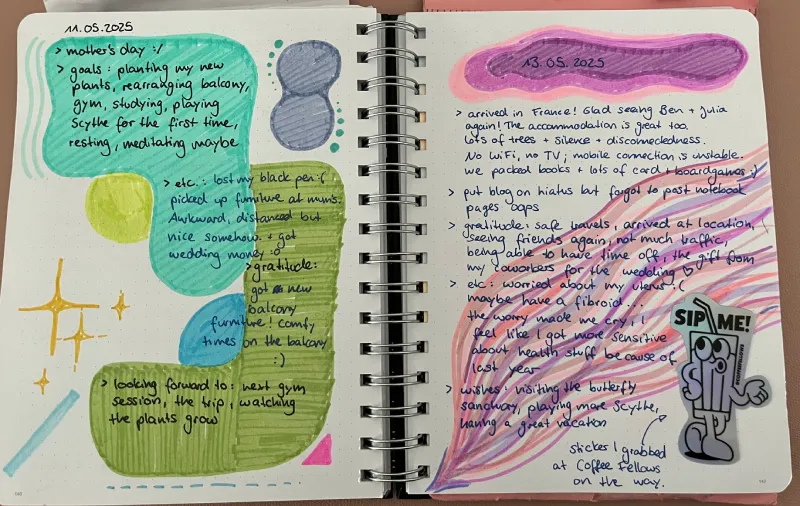 11.05.2025
> mother's day :/
> goals: planting my new
plants, rearranging balcony,
gym, studying, playing
Scythe for the first time,
resting, meditating maybe
> etc.: lost my black pen :(
picked up furniture at mum's.
Awkward, distanced but
nice somehow. + got
wedding money :o
> gratitude:
got new
balcony
furniture! comfy
times on the balcony
:)
> looking forward to: next gym
session, the trip, watching
the plants grow
13.05.2025
> arrived in France! Glad seeing Ben + Julia
again! The accommodation is great too.
lots of trees + silence + disconnectedness.
No WiFi, no TV; mobile connection is unstable.
we packed books + lots of card + boardgames :)
> put blog on hiatus but forgot to post notebook
pages oops
> gratitude: safe travels, arrived at location,
seeing friends again, not much traffic,
being able to have time off, the gift from
my coworkers for the wedding ♡
> etc: worried about my uterus :(
maybe have a fibroid...
the worry made me cry, I
feel like I got more sensitive
about health stuff because of
last year
> wishes: visiting the butterfly
sanctuary, playing more Scythe,
having a great vacation
SIP ME!
sticker I grabbed
at Coffee Fellows
on the way.